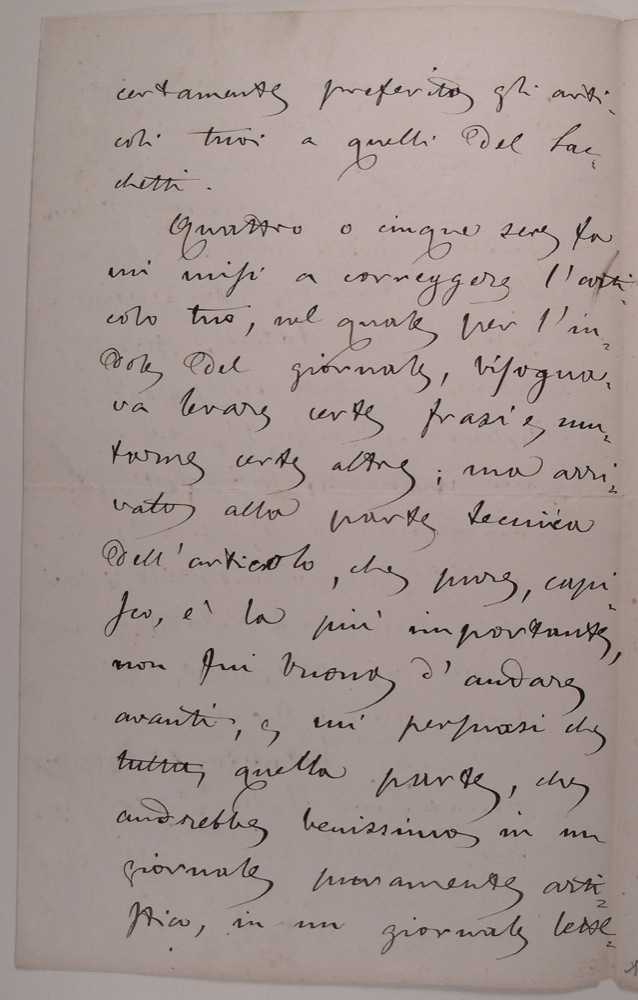 certamente preferito gli arti-
coli tuoi a quelli del Sac-
chetti.
Quattro o cinque sere fa
mi misi a correggere l'arti-
colo tuo, nel quale per l'in-
dole del giornale, bisogna-
va levare certe frasi e mu-
tarne certe altre; ma arri-
vato alla parte tecnica
dell'articolo, che pure, capi-
sco, è la più importante,
non fui buono d'andare
avanti, e mi persuasi che
tutta quella parte, che
andrebbe benissimo in un
giornale puramente arti-
stico, in un giornale lette-